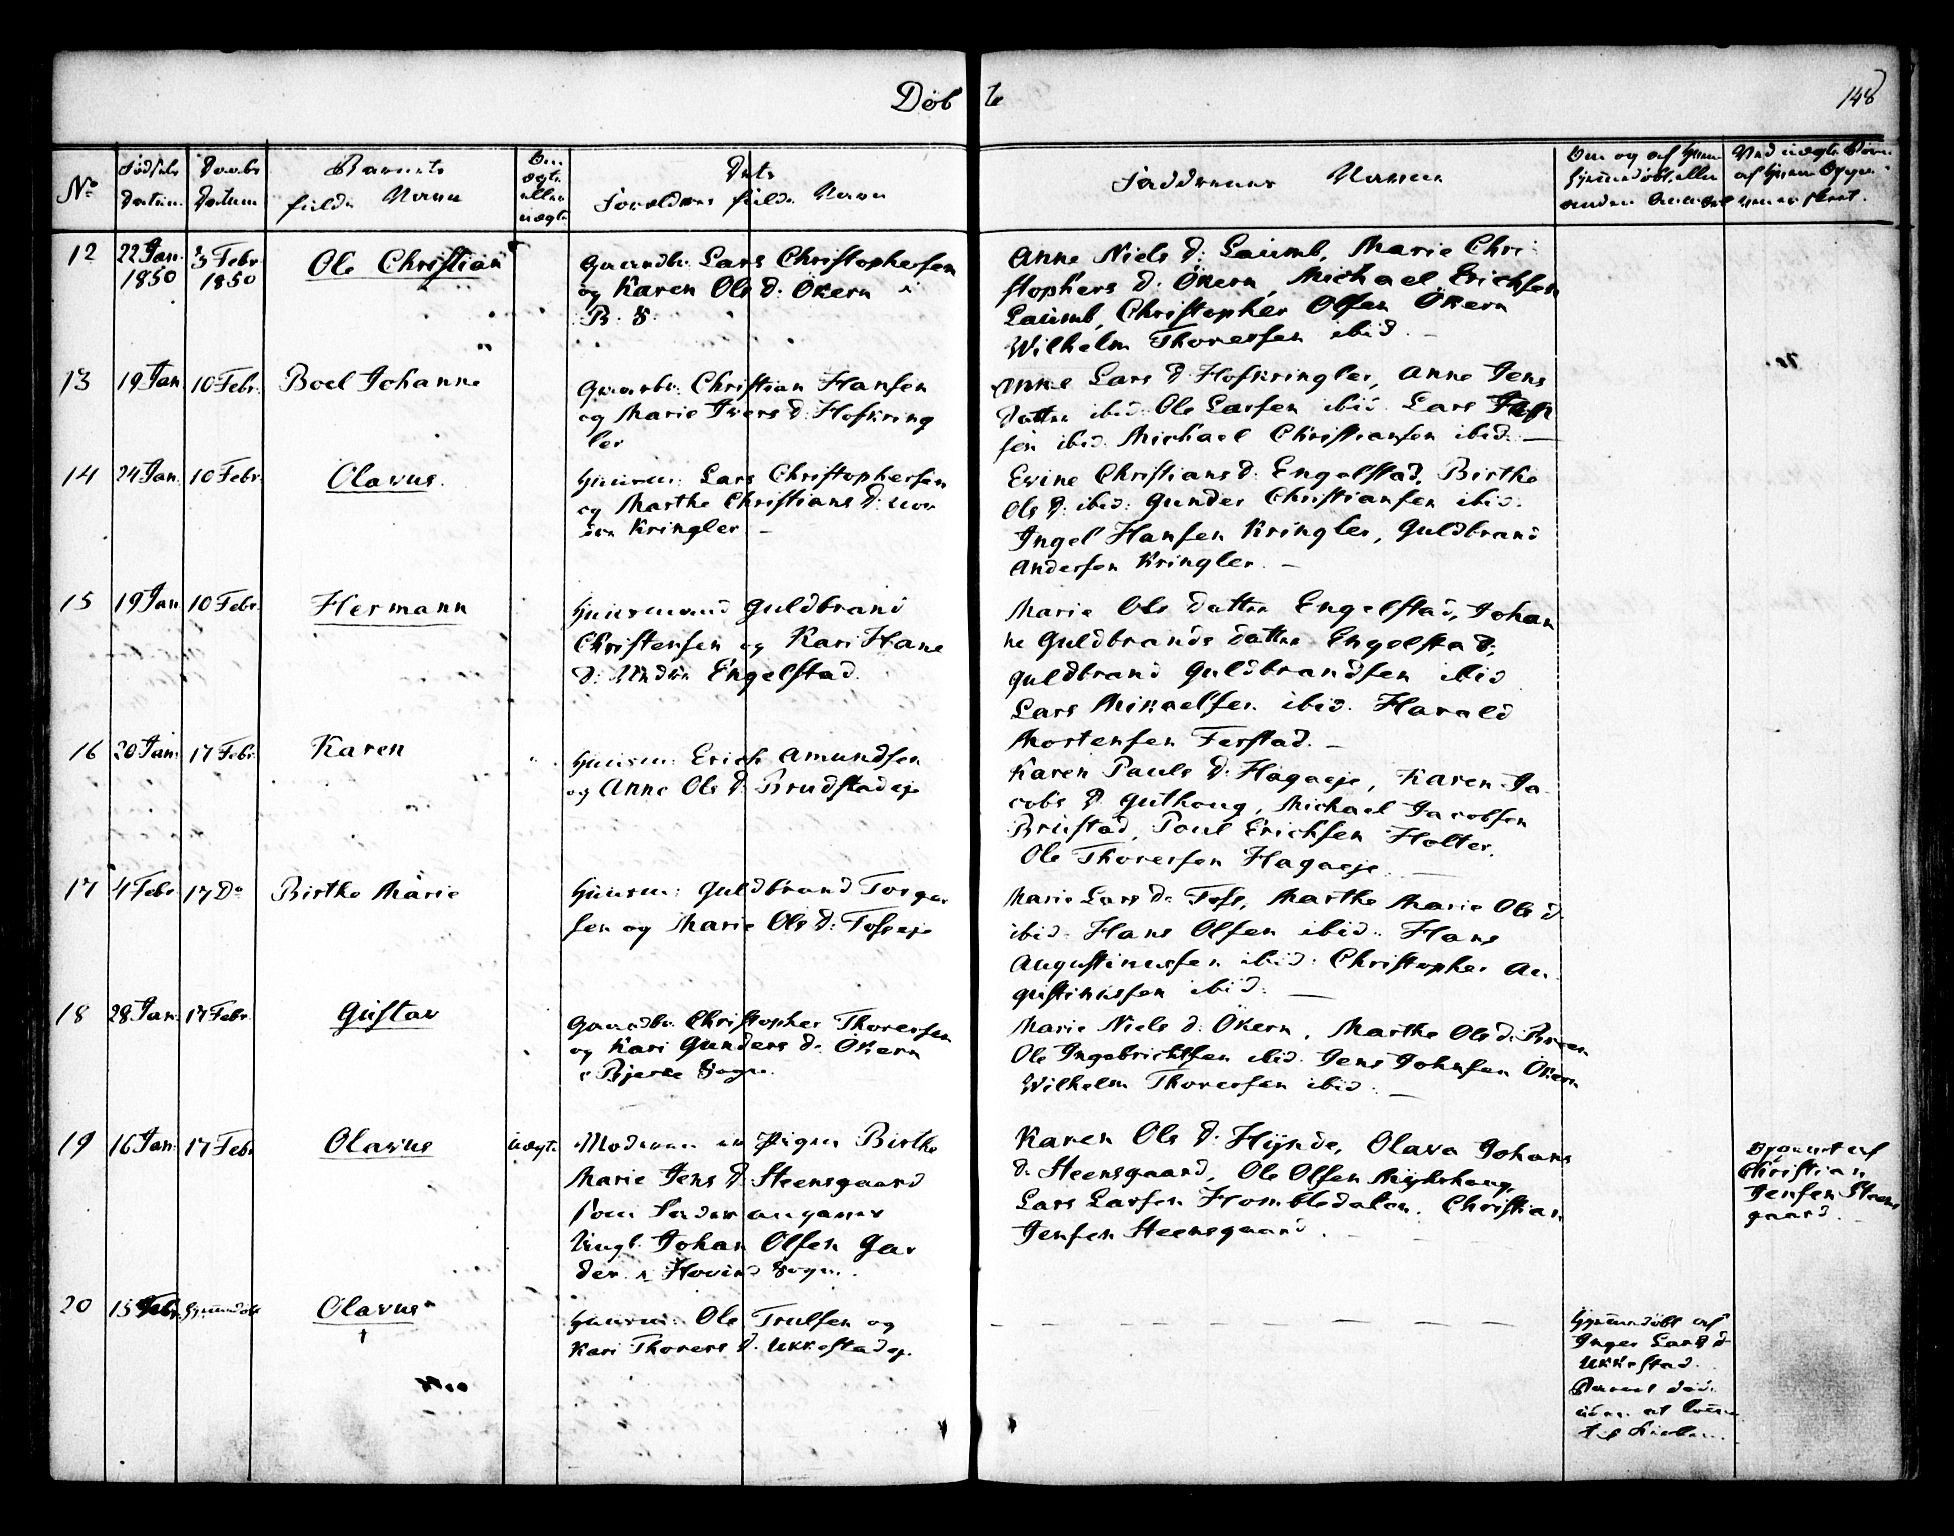 Døbte
148
No
Fødsels Datum
Daabs Datum
Barnets fulde Navn
Om ægte eller uægte
Dets Forældres fulde Navn
Faddrenes Navne
12
22 Jan. 1850
3 Febr. 1850
Ole Christian
Gaardbr. Lars Christophersen
og Karen Ols D. Økern i
B. S.
Anne Niels D: Laumb, Marie Chri-
stophers D. Økern, Michael Erichsen
Laumb, Christopher Olsen Økern
Wilhelm Thoresen ibid. –
13
19 Jan
10 Febr.
Boel Johanne
Gaardbr. Christian Hansen
og Marie Ivers D. Hofkring
ler
Anne Lars D. Hofkringler, Anne Jens
Datter ibid. Ole Larsen ibid. Lars
sen ibid. Michael Christiansen ibid. –
14
24 Jan.
10 Febr.
Olavus.
Huusm: Lars Christophersen
og Marthe Christians D. nor
dre Kringler –
Evine Christians D. Engelstad, Birthe
Ols D. ibid: Gunder Christiansen ibid.
Ingel Hansen Kringler, Guldbrand
Andersen Kringler. –
15
19 Jan
10 Febr.
Hermann
Huusmand Guldbrand
Christensen og Kari Hans
D. Engelstad.
Marie Ols Datter Engelstad, Johan
ne Guldbrands Datter Engelstad;
Guldbrand Guldbrandsen ibid
Lars Mikaelsen ibid. Harald
Mortensen Ferstad. –
16
20 Jan.
17 Febr.
Karen
Huusm: Erich Amundsen
og Anne Ols D. Brudstadeje
Karen Pauls D. Hagaeje, Karen Ja-
cobs D Guthoug, Michael Jacobsen
Brustad, Poul Erichsen Holter.
Ole Thoresen Hagaeje. –
17
4 Febr
17 Do
Birthe Marie
Huusm: Guldbrand Torger
sen og Marie Ols D: Tosseje
Marie Lars D. Toss, Marthe Marie Ols D
ibid. Hans Olsen ibid. Hans
Augustinussen ibid. Christopher Au-
gustinussen ibid. –
18
28 Jan.
17 Febr.
Gustav
Gaardbr. Christopher Thoresen
og Kari Gunders D. Økern
i Bjerke Sogn.
Marie Niels D. Økern, Marthe Ols D.
Ole Ingebrichtsen ibid. Jens Johnsen Økern
Wilhelm Thoresen ibid. –
19
16 Jan.
17 Febr
Olavus
uægte
Moderen er Pigen Birthe
Marie Jens D Steensgaard
som Fader angives
Ungk. Johan Olsen Gar
der i Hovind Sogn.
Karen Ols D. Hynde, Olava Johans
D. Steensgaard, Ole Olsen Myhrhaug,
Lars Larsen Hombledalen. Christian
Jensen Steensgaard. –
Opgivet af
Christian
Jensen Steens
gaard. –
20
15 Febr.
Hjemmdøbt
Olavus
†
Huusm: Ole Trulsen og
Kari Thores D. Ukkestadej.
Hjemmdøbt af
Inger Lars D
Ukkestad.
Barnet død
uden at
til Kirken.